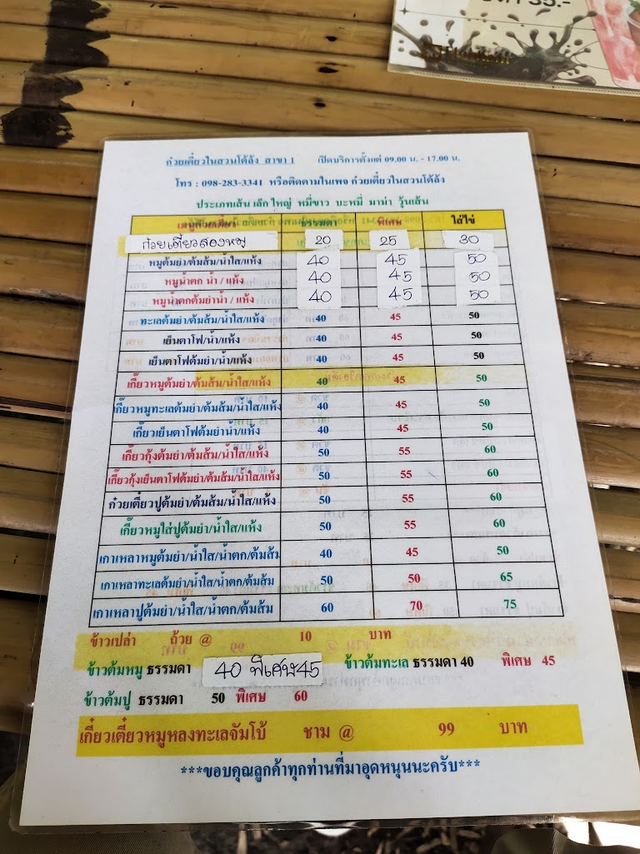 35.-
ก๋วยเตี๋ยวในสวนโต้ล้ง สาขา 1 เปิดบริการตั้งแต่ 09.00 น. - 17.00 น.
โทร : 098-283-3341 หรือติดตามในเพจ ก๋วยเตี๋ยวในสวนโต้ล้ง
ประเภทเส้น เล็ก ใหญ่ หมี่ขาว บะหมี่ มาม่า วุ้นเส้น
ธรรมดา พิเศษ ใส่ไข่
ก๋วยเตี๋ยวสองหมู 20 25 30
หมูต้มยำ/ต้มส้ม/น้ำใส/แห้ง 40 45 50
หมูน้ำตก น้ำ / แห้ง 40 45 50
หมูน้ำตกต้มยำน้ำ / แห้ง 40 45 50
ทะเลต้มยำ/ต้มส้ม/น้ำใส/แห้ง 40 45 50
เย็นตาโฟ/น้ำ/แห้ง 40 45 50
เย็นตาโฟต้มยำ/น้ำ/แห้ง 40 45 50
เกี๊ยวหมูต้มยำ/ต้มส้ม/น้ำใส/แห้ง 40 45 50
เกี๊ยวหมูทะเลต้มยำ/ต้มส้ม/น้ำใส/แห้ง 40 45 50
เกี๊ยวเย็นตาโฟต้มยำน้ำ/แห้ง 40 45 50
เกี๊ยวกุ้งต้มยำ/ต้มส้ม/น้ำใส/แห้ง 50 55 60
เกี๊ยวกุ้งเย็นตาโฟต้มยำ/ต้มส้ม/น้ำใส/แห้ง 50 55 60
ก๋วยเตี๋ยวปูต้มยำ/ต้มส้ม/น้ำใส/แห้ง 50 55 60
เกี๊ยวหมูใส่ปูต้มยำ/น้ำใส/แห้ง 50 55 60
เกาเหลาหมูต้มยำ/น้ำใส/น้ำตก/ต้มส้ม 40 45 50
เกาเหลาทะเลต้มยำ/น้ำใส/น้ำตก/ต้มส้ม 50 50 65
เกาเหลาปูต้มยำ/น้ำใส/น้ำตก/ต้มส้ม 60 70 75
ข้าวเปล่า ถ้วย @ 10 บาท
ข้าวต้มหมู ธรรมดา 40 พิเศษ 45 ข้าวต้มทะเล ธรรมดา 40 พิเศษ 45
ข้าวต้มปู ธรรมดา 50 พิเศษ 60
เกี๋ยวเตี๋ยวหมูหลงทะเลจัมโบ้ ชาม @ 99 บาท
***ขอบคุณลูกค้าทุกท่านที่มาอุดหนุนนะครับ***